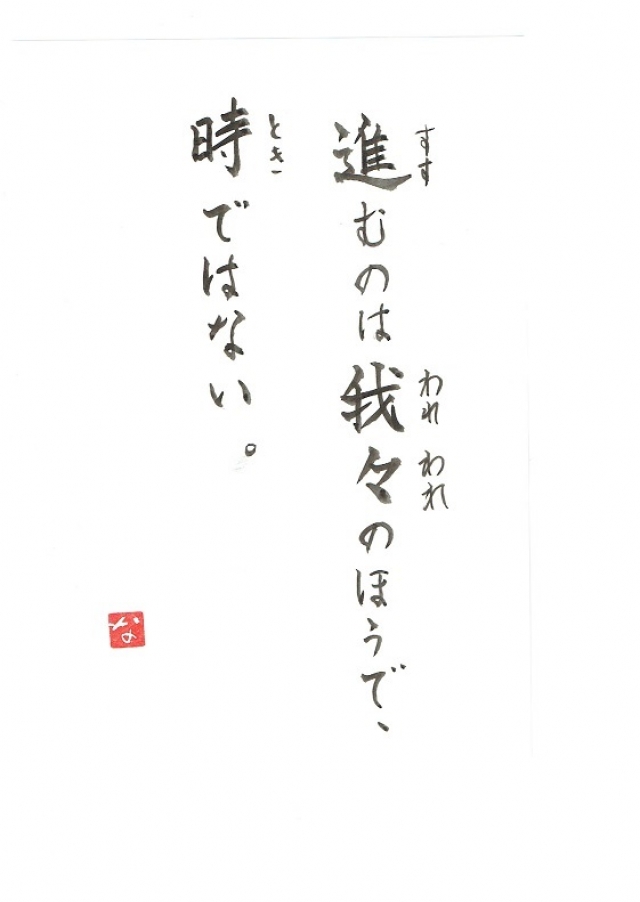 すす
進むのは我々のほうで、
われ われ
とき
時ではない。
な